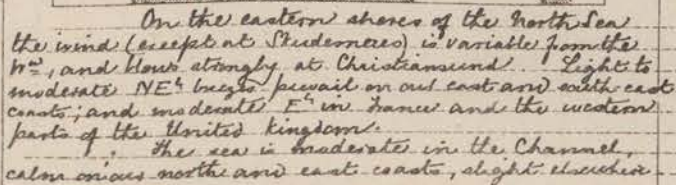 On the eastern shores of the North Sea
the wind (except at Skudesnaes) is variable from the
Wd, and blows strongly at Christiansund. Light to
moderate NEly breezes prevail on our east and south east
coasts; and moderate Ely in France and the western
parts of the United Kingdom.
The sea is moderate in the Channel,
calm on our north and east coasts, slight elsewhere